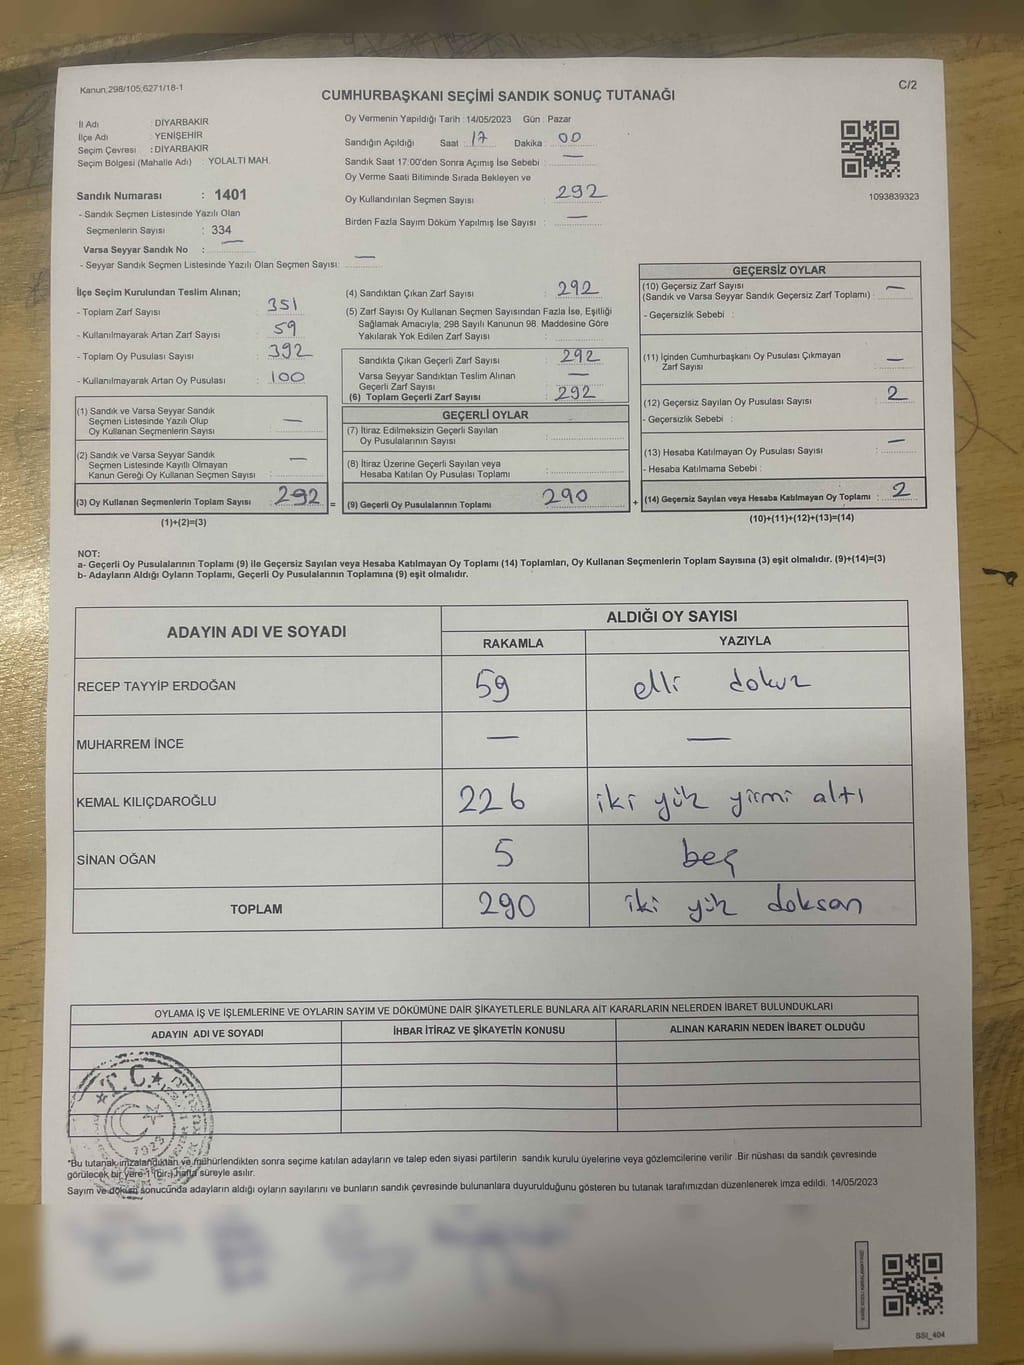 Kanun,298/105,6271/18-1
C/2
CUMHURBAŞKANI SEÇİMİ SANDIK SONUÇ TUTANAĞI
İl Adı : DİYARBAKIR
İlçe Adı : YENİŞEHİR
Seçim Çevresi : DİYARBAKIR
Seçim Bölgesi (Mahalle Adı) : YOLALTI MAH.
Sandık Numarası : 1401
- Sandık Seçmen Listesinde Yazılı Olan
Seçmenlerin Sayısı : 334
Varsa Seyyar Sandık No : —
- Seyyar Sandık Seçmen Listesinde Yazılı Olan Seçmen Sayısı: —
Oy Vermenin Yapıldığı Tarih : 14/05/2023 Gün : Pazar
Sandığın Açıldığı Saat : 17 Dakika : 00
Sandık Saat 17:00'den Sonra Açımış İse Sebebi : —
Oy Verme Saati Bitiminde Sırada Bekleyen ve
Oy Kullandırılan Seçmen Sayısı : 292
Birden Fazla Sayım Döküm Yapılmış İse Sayısı : —
1093839323
İlçe Seçim Kurulundan Teslim Alınan;
- Toplam Zarf Sayısı : 351
- Kullanılmayarak Artan Zarf Sayısı : 59
- Toplam Oy Pusulası Sayısı : 392
- Kullanılmayarak Artan Oy Pusulası : 100
(1) Sandık ve Varsa Seyyar Sandık
Seçmen Listesinde Yazılı Olup
Oy Kullanan Seçmenlerin Sayısı : —
(2) Sandık ve Varsa Seyyar Sandık
Seçmen Listesinde Kayıtlı Olmayan
Kanun Gereği Oy Kullanan Seçmen Sayısı : —
(3) Oy Kullanan Seçmenlerin Toplam Sayısı : 292 =
(1)+(2)=(3)
(4) Sandıktan Çıkan Zarf Sayısı : 292
(5) Zarf Sayısı Oy Kullanan Seçmen Sayısından Fazla İse, Eşitliği
Sağlamak Amacıyla; 298 Sayılı Kanunun 98. Maddesine Göre
Yakılarak Yok Edilen Zarf Sayısı :
Sandıkta Çıkan Geçerli Zarf Sayısı : 292
Varsa Seyyar Sandıktan Teslim Alınan
Geçerli Zarf Sayısı : —
(6) Toplam Geçerli Zarf Sayısı : 292
GEÇERLİ OYLAR
(7) İtiraz Edilmeksizin Geçerli Sayılan
Oy Pusulalarının Sayısı :
(8) İtiraz Üzerine Geçerli Sayılan veya
Hesaba Katılan Oy Pusulası Toplamı :
(9) Geçerli Oy Pusulalarının Toplamı : 290 +
GEÇERSİZ OYLAR
(10) Geçersiz Zarf Sayısı
(Sandık ve Varsa Seyyar Sandık Geçersiz Zarf Toplamı) : —
- Geçersizlik Sebebi :
(11) İçinden Cumhurbaşkanı Oy Pusulası Çıkmayan
Zarf Sayısı : —
(12) Geçersiz Sayılan Oy Pusulası Sayısı : 2
- Geçersizlik Sebebi :
(13) Hesaba Katılmayan Oy Pusulası Sayısı : —
- Hesaba Katılmama Sebebi :
(14) Geçersiz Sayılan veya Hesaba Katılmayan Oy Toplamı : 2
(10)+(11)+(12)+(13)=(14)
NOT:
a- Geçerli Oy Pusulalarının Toplamı (9) ile Geçersiz Sayılan veya Hesaba Katılmayan Oy Toplamı (14) Toplamları, Oy Kullanan Seçmenlerin Toplam Sayısına (3) eşit olmalıdır. (9)+(14)=(3)
b- Adayların Aldığı Oyların Toplamı, Geçerli Oy Pusulalarının Toplamına (9) eşit olmalıdır.
ADAYIN ADI VE SOYADI
ALDIĞI OY SAYISI
RAKAMLA YAZIYLA
RECEP TAYYİP ERDOĞAN 59 elli dokuz
MUHARREM İNCE — —
KEMAL KILIÇDAROĞLU 226 iki yüz yirmi altı
SİNAN OĞAN 5 beş
TOPLAM 290 iki yüz doksan
OYLAMA İŞ VE İŞLEMLERİNE VE OYLARIN SAYIM VE DÖKÜMÜNE DAİR ŞİKAYETLERLE BUNLARA AİT KARARLARIN NELERDEN İBARET BULUNDUKLARI
ADAYIN ADI VE SOYADI İHBAR İTİRAZ VE ŞİKAYETİN KONUSU ALINAN KARARIN NEDEN İBARET OLDUĞU
★T.C.★
1923
*Bu tutanak imzalandıktan ve mühürlendikten sonra seçime katılan adayların ve talep eden siyasi partilerin sandık kurulu üyelerine veya gözlemcilerine verilir. Bir nüshası da sandık çevresinde
görülecek bir yere 1 (bir) hafta süreyle asılır.
Sayım ve döküm sonucunda adayların aldığı oyların sayılarını ve bunların sandık çevresinde bulunanlara duyurulduğunu gösteren bu tutanak tarafımızdan düzenlenerek imza edildi. 14/05/2023
SSI_404